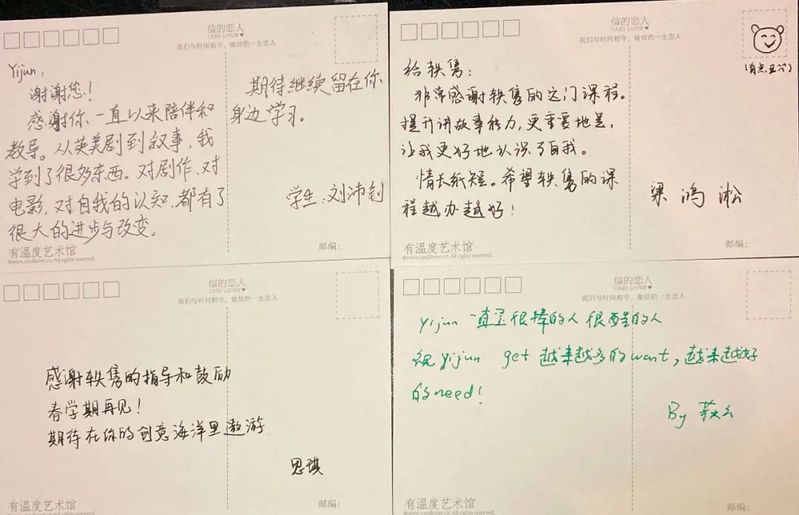 信的恋人
CARD LOVER
我们与时间相守，做信的一生恋人
Yijun,
谢谢您！
感谢你一直以来陪伴和
教导。从英美剧到叙事，我
学到了很多东西。对剧作、对
电影、对自我的认知，都有了
很大的进步与改变。
期待继续留在你
身边学习。
学生：刘沛钊
有温度艺术馆
邮编：
信的恋人
CARD LOVER
我们与时间相守，做信的一生恋人
给轶隽：
非常感谢轶隽的这门课程。
提升讲故事能力，更重要地是，
让我更好地认识了自我。
情长纸短。希望轶隽的课
程越办越好！
(有点丑)
梁鸿淞
有温度艺术馆
邮编：
信的恋人
CARD LOVER
我们与时间相守，做信的一生恋人
感谢轶隽的指导和鼓励
春学期再见！
期待在你的创意海洋里遨游
思琪
有温度艺术馆
邮编：
信的恋人
CARD LOVER
我们与时间相守，做信的一生恋人
Yijun 一直是很棒的人 很酷的人
祝 yijun get 越来越多的want，越来越好
的need！
By
有温度艺术馆
邮编：